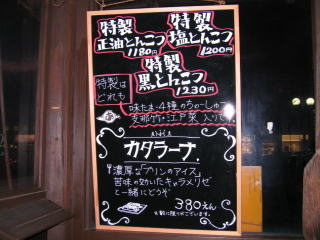 特製
正油とんこつ
1180円
特製
塩とんこつ
1200円
特製
黒とんこつ
1230円
特製は
どれも
味たま・4種のちゃーしゅー
支那竹・江戸菜 入りです
カタラーナ
濃厚な「プリンのアイス」
苦味の効いたキャラメリゼ
と一緒にどうぞ
380えん